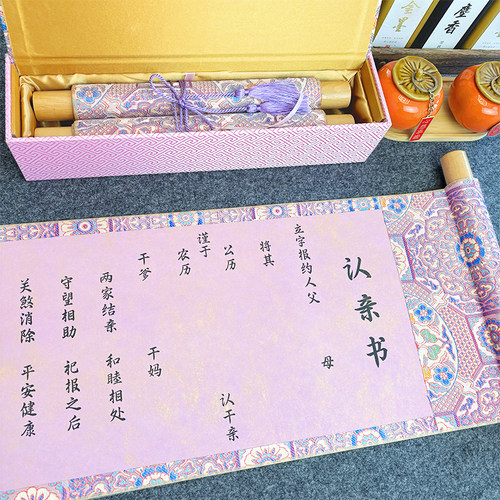 认亲书
立字报约人父 母
将其
公历 认干亲
谨于
农历
干爹 干妈
两家结亲 和睦相处
守望相助 祀报之后
关煞消除 平安健康
金墨
麝香